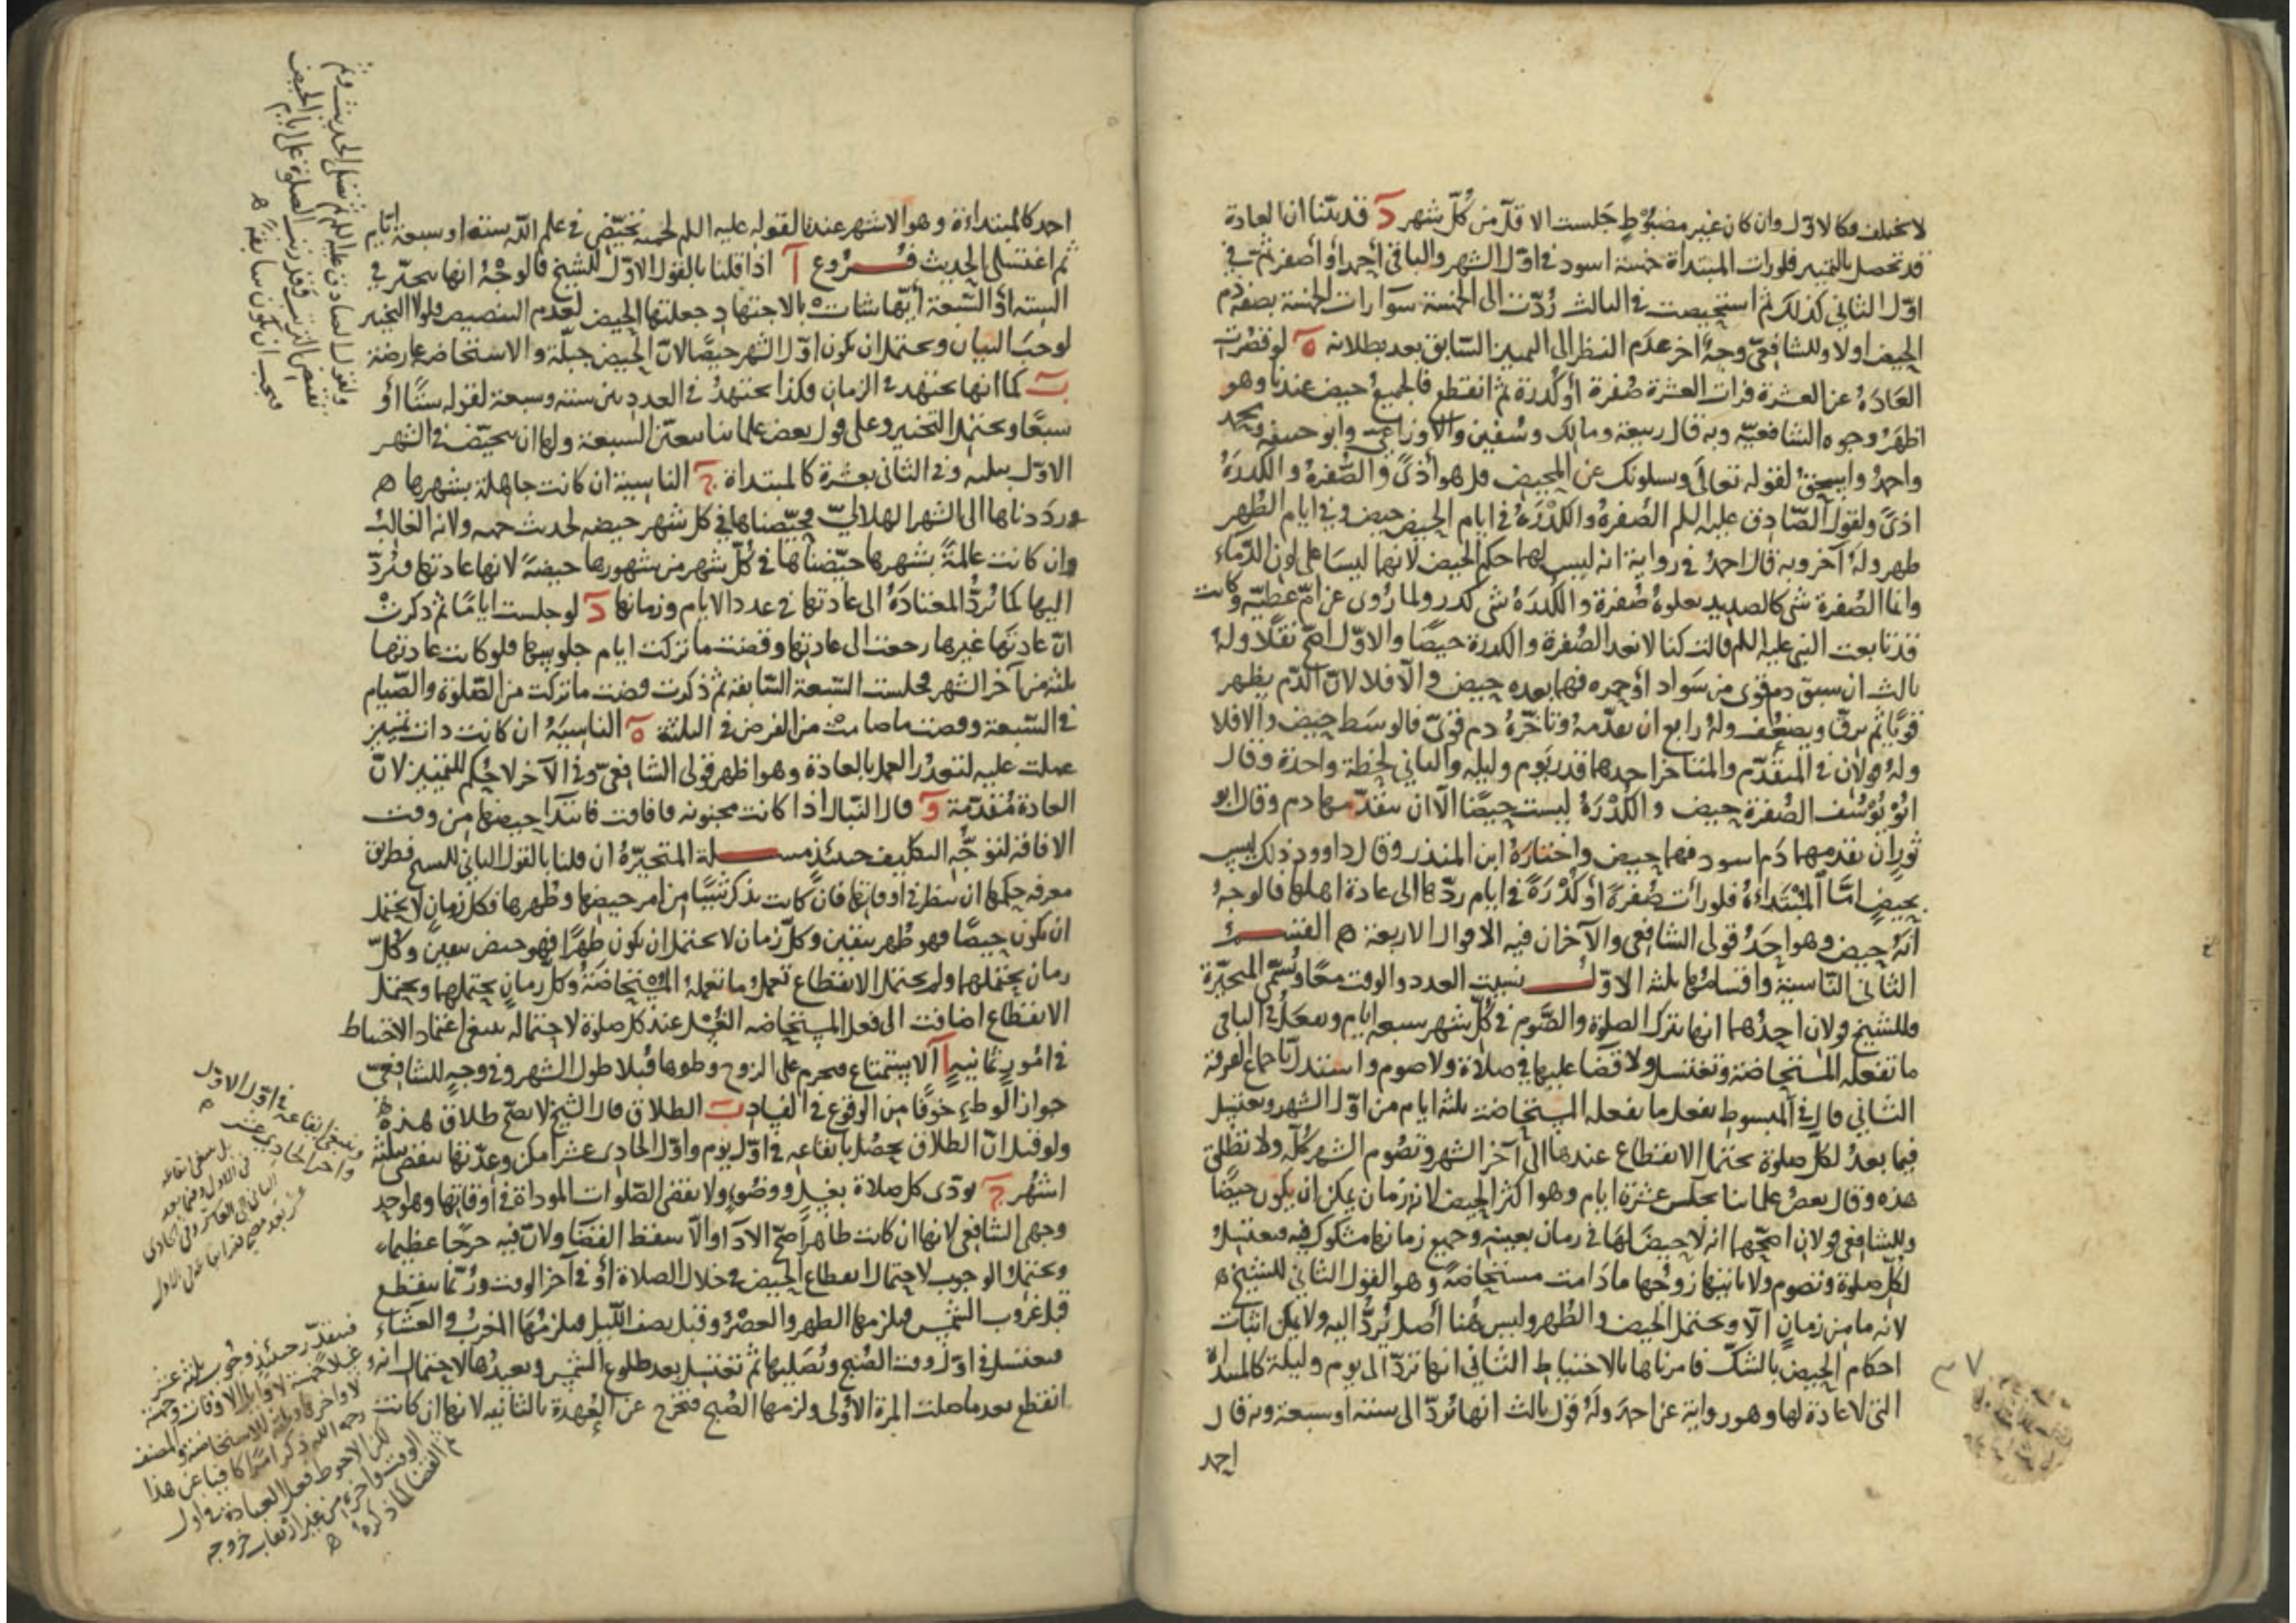 لا يختلف فكالاول وان كان غير مضبوط جلست الاقل من كل شهر د قد بيّنا ان العادة
قد تحصل بالتمييز فلو رات المبتداة خمسة اسود في اول الشهر والباقي احمر أو أصفر ثم في
اوّل الثاني كذلك ثم استحيضت في الثالث رُدّت الى الخمسة سوا رات الخمسة بصفة دم
الحيض اولا وللشافعي وجه اخر عدم النظر الى التمييز السابق بعد بطلانه ه لو قصرت
العادة عن العشرة فرات العشرة صُفرة أو كُدرة ثم انقطع فالجميع حيض عندنا وهو
اظهر وجوه الشافعيّة وبه قال ربيعة ومالك وسفين والاوزاعي وابو حنيفة ومحمد
واحمد واسحق لقوله تعالى ويسلونك عن المحيض قل هو أذىً والصُّفرة والكدرة
اذىً ولقول الصّادق عليه السلم الصُفرة والكدْرَة في ايام الحيض حيض وفي ايام الطُهر
طهر وله آخر وبه قال احمد في رواية انه ليس لهما حكم الحيض لانهما ليسَا على لون الدّماء
وانما الصُفرة شي كالصديد تعلوهُ صُفرة والكُدرَة شي كدر ولما رُوى عن امّ عطيّة وكانت
قد بايعت النبي عليه السلم قالت كنا لا نعد الصُفرة والكدرة حيضًا والاوّل اصحّ نقلًا وله
ثالث ان سبق دم قوى من سَواد أو حمره فهما بعده حيض والّا فلا لانّ الدّم يظهر
قويًّا ثم يرقّ ويضعُف وله رابع ان تقدّمهُ وتاخّرهُ دم قوىّ فالوسَط حيض والا فلا
وله قولان في المتقدّم والمتاخر احدهما قدر يَوم وليله والثاني لحظة واحدة وقال
ابُو يُوسُف الصُفرة حيض والكُدْرَةُ ليست حيضًا الّا ان يتقدّمها دم وقال ابو
ثور ان تقدمهما دَم اسود فهما حيض واختارهُ ابن المنذر وقال داوود ذلك ليس
بحيض امّا المُبْتَداةُ فلو رأت صُفرةً أو كُدْرَةً في ايام ردّها الى عادة اهلها فالوجهُ
أنّهُ حيض وهو احَدُ قولى الشافعى والآخران فيه الاقوال الاربعة ه القسم
الثاني النّاسية واقسامُها ثلثة الاوّل نسيت العدد والوقت معًا وتُسمّى المتحيّرة
وللشيخ قولان احدُهما انها تترك الصلوة والصَّوم في كُلّ شهر سبعه ايام وتفعلُ في الباقي
ما تفعله المُستحاضة وتغتسل ولا قضا عليها في صلاة ولا صوم واستدلّ باجماع الفرقة
الثاني قال في المبسوط تفعل ما تفعله المستحاضة ثلثة ايام من اوّل الشهر وتغتسل
فيما بعدُ لكلّ صلوة يحتمل الانقطاع عندها الى آخر الشهر وتصُوم الشهر كلّه ولا تُطلّق
هذه وقال بعضُ علمائنا تجلس عشرة ايام وهو اكثر الحيض لانه زمان يمكن ان يكون حيضًا
وللشافعى قولان اصحّهما انه لا حيضَ لهَا في زمان بعينه وجميع زمانها مشكوك فيه فتغتسل
لكل صلوة وتصوم ولا ياتيها زوجُها ما دَامت مستحاضةً وهو القول الثاني للشيخ ه
لانه ما من زمانٍ الّا ويحتمل الحيض والطُهر وليس هُنا أصل تُردُّ اليه ولا يمكن اثبات
احكام الحيض بالشكّ فامرناها بالاحتياط الثاني انها تردّ الى يوم وليلة كالمبتداة
التى لا عادة لها وهو رواية عن احمد ولهُ قول ثالث انها تُردّ الى ستة او سبعة وبه قال
احمد
احمد كالمبتداءة وهو الاشهر عندنا لقوله عليه السلم لحمنة تحيّضى في علم اللّه ستة او سبعة أيّام
ثم اغتسلى الحديث فُرُوع آ اذا قلنا بالقول الاوّل للشيخ فالوجْهُ انها تتخيّر في
الستة أو السّبعة أيّها شاتْ بالاجتهاد جعلتها الحيض لعدم التنصيص فلولا التخيير
لوجبَ البيان ويحتمل ان يكون اوّل الشهر حيضًا لانّ الحيض جبلّة والاستحاضة عارضة
ب كما انها تجتهد في الزمان فكذا تجتهدُ في العدد بين ستة وسبعة لقوله ستًّا أو
سبعًا ويحتمل التخيير وعلى قول بعض علمائنا تتعيّن السبعة ولها ان تتحيّض في الشهر
الاوّل بثلثه وفي الثاني بعشرة كالمبتداة ج الناسية ان كانت جاهلة بشهرها ه
وردَدناها الى الشهر الهلاليّ حيّضناها في كل شهر حيضه لحديث حمنه ولانه الغالبُ
وان كانت عالمةً بشهرها حيّضناها في كُلّ شهر من شهورها حيضةً لانها عادتها فتُردّ
اليها كما تُردُّ المعتادَةُ الى عادتها في عدد الايام وزمانها د لو جلست ايامًا ثم ذكرتْ
انّ عادتَها غيرها رجعت الى عادتها وقضت ما تركت ايام جلوسها فلو كانت عادتها
ثلثة من آخر الشهر فجلست السّبعة السّابقة ثم ذكرت قضت ما تركت من الصّلوة والصّيام
في السّبعة وقضت ما صامتْ من الفرض في الثلثة ه الناسيَةُ ان كانت ذات تمييز
عملت عليه لتعذّر العمل بالعادة وهو اظهر قولى الشافعىّ وفي الآخر لا حُكم للتمييز لانّ
العادة مُتقدّمة و قال القفّال اذا كانت مجنونه فافاقت فابتدآ حيضها من وقت
الافاقة لتوجّه التكليف حينئذٍ مسـلة المتحيّرة ان قلنا بالقول الثاني للشيخ فطريق
معرفه حكمها ان ينظر في اوقاتها فان كانت تذكر شيئًا من امر حيضها وطُهرها فكل زمانٍ لا يحتمل
ان يكون حيضًا فهو طُهر بيقين وكلّ زمان لا يحتمل ان يكون طهرًا فهو حيض بيقين وكُلّ
زمان يحتملهما ولم يحتمل الانقطاع تعمل ما تعملهُ المُستحاضَةُ وكلّ زمانٍ يحتملهما ويحتمل
الانقطاع اضافت الى فعل المستحاضه الغُسْل عند كل صلوة لاحتماله ينبغى اعتماد الاحتياط
في امُور ثمانية آ الاستمتاع فيحرم على الزوج وطوها قُبلا طول الشهر وفي وجهٍ للشافعيّ
جواز الوطءِ خوفًا من الوقوع في الفساد ب الطلاق قال الشيخ لا يصحّ طلاق هذه
ولو قيل انّ الطلاق يحصُل بايقاعه في اوّل يوم واوّل الحادى عشر امكن وعدّتها تنقضى بثلثة
اشهُر ج تؤدّى كل صلاة بغسلٍ ووضُوءٍ ولا تقضى الصّلوات المؤداة في أوقاتها وهو احد
وجهى الشافعى لانها ان كانت طاهراً صحّ الاداء والّا سقط القضَا ولانّ فيه حرجًا عظيماء
ويحتمل الوجوب لاحتمال انقطاع الحيض في خلال الصلاة أو في آخر الوقت ورُبّما ينقطع
قبل غروب الشمس فيلزمها الظهر والعصْرُ وقبل نصف اللّيل فيلزمُهَا المغربُ والعشاء
فتغتسل في اوّل وقت الصُبح وتُصَليها ثم تغتسل بعد طلوع الشمس وتعيدُها لاحتمال انه
انقطع بعد ما صلت المرة الأولى ولزمها الصُبح فتخرج عن العُهدة بالثانيه لانها ان كانت